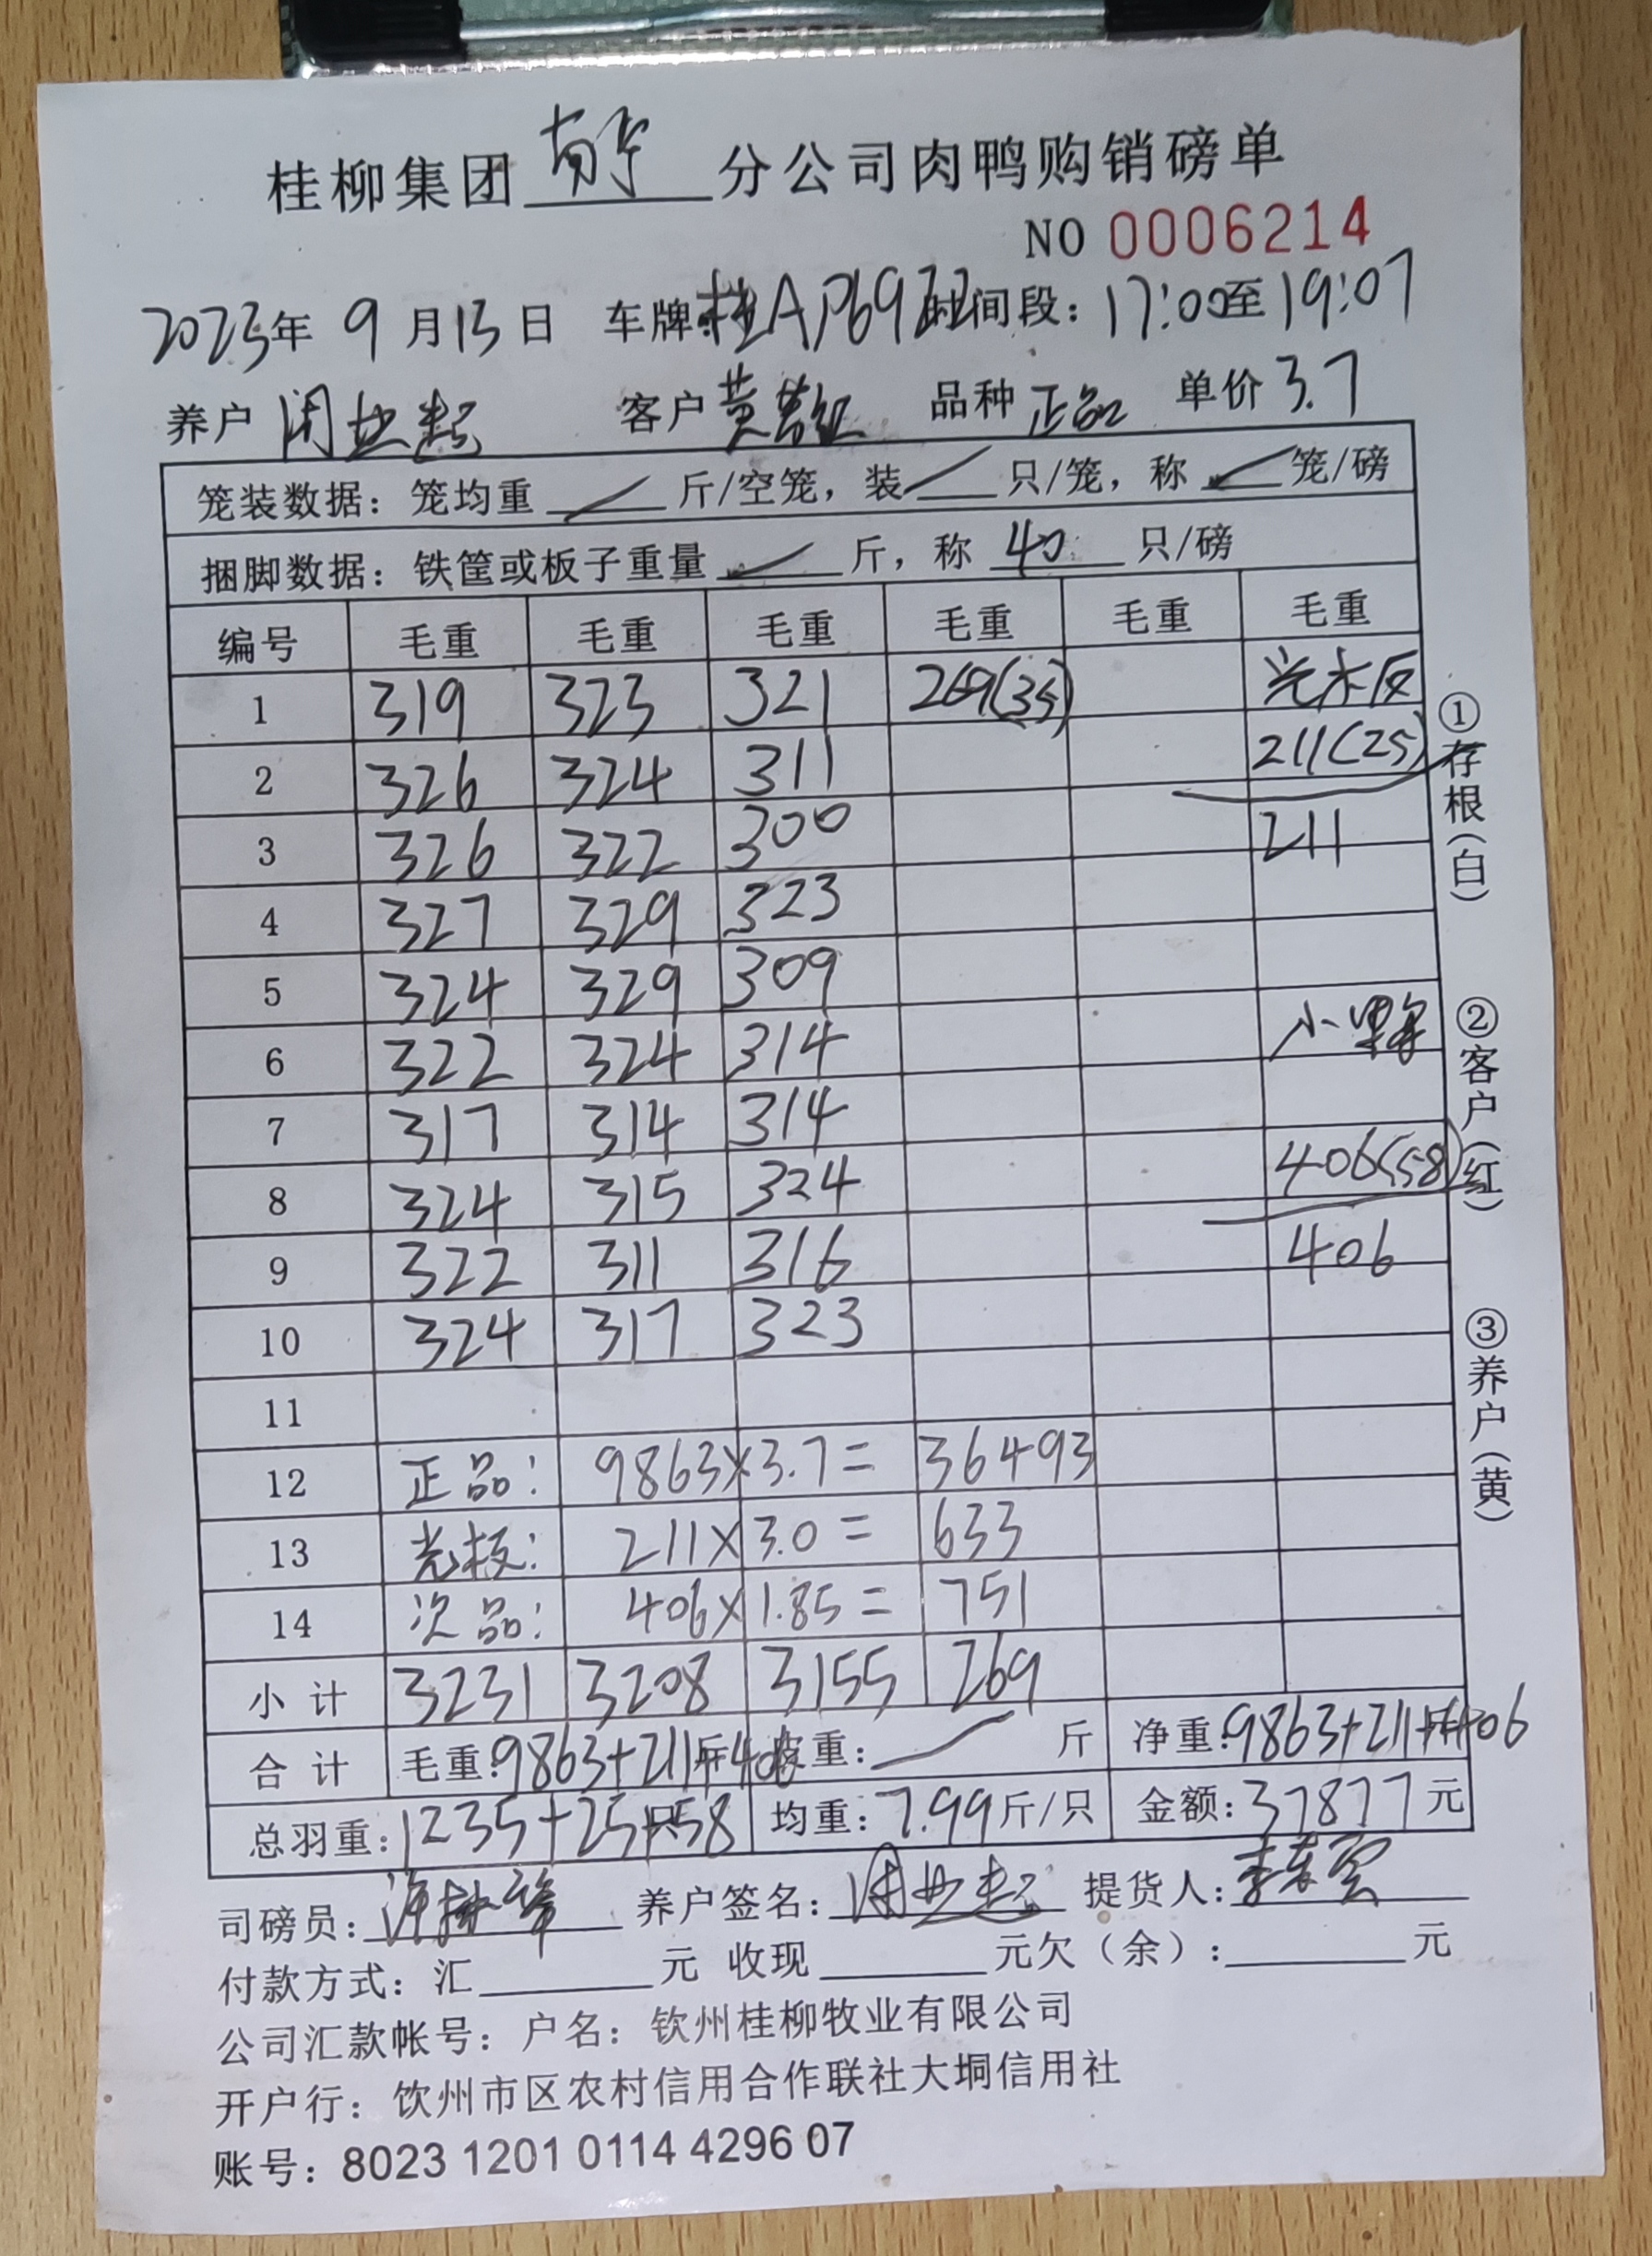 桂柳集团 南宁 分公司肉鸭购销磅单
NO 0006214
2023年 9 月 13 日 车牌:桂AP69 时间段: 17:00至19:07
养户 闭业起 客户 黄 品种 正品 单价 3.7
笼装数据: 笼均重 / 斤/空笼, 装 / 只/笼, 称 / 笼/磅
捆脚数据: 铁筐或板子重量 / 斤, 称 40 只/磅
编号 毛重 毛重 毛重 毛重 毛重 毛重
1 319 323 321 269(35) 光木反
2 326 324 311 211(25)
3 326 322 300 211
4 327 329 323
5 324 329 309
6 322 324 314 小
7 317 314 314
8 324 315 324 406(58)
9 322 311 316 406
10 324 317 323
11
12 正品: 9863×3.7= 36493
13 光板: 211×3.0= 633
14 次品: 406×1.85= 751
小计 3231 3208 3155 269
合计 毛重:9863+211+406斤 皮重: / 斤 净重:9863+211+406斤
总羽重:1235+25+58只 均重:7.99斤/只 金额:37877元
司磅员: 养户签名:闭业起 提货人:李
付款方式: 汇 元 收现 元欠(余): 元
公司汇款帐号: 户名: 钦州桂柳牧业有限公司
开户行: 饮州市区农村信用合作联社大垌信用社
账号: 8023 1201 0114 4296 07
①存根(白)
②客户(红)
③养户(黄)